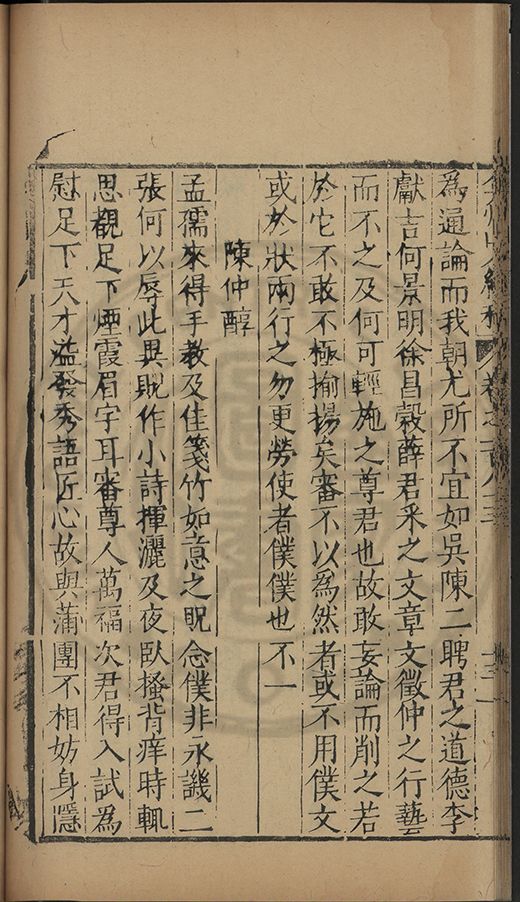 爲通論而我朝尤所不宜如吳陳二聘君之道德李
獻吉何景明徐昌穀薛君采之文章文徵仲之行藝
而不之及何可輕施之尊君也故敢妄論而削之若
於它不敢不極揄揚矣審不以爲然者或不用僕文
或於狀兩行之勿更勞使者僕僕也不一
陳仲醇
孟孺來得手教及佳箋竹如意之貺念僕非永譏二
張何以辱此異貺作小詩揮灑及夜臥搔背痒時輒
思觀足下煙霞眉宇耳審尊人萬福次君得入試爲
慰足下天才溢發秀語匠心故與蒲團不相妨身隱